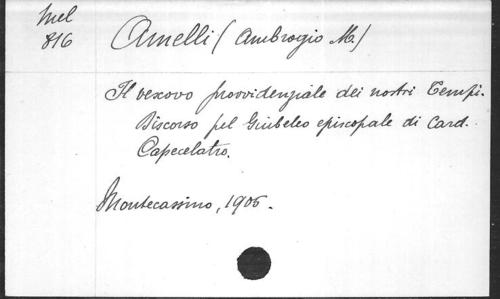 Mel
816
Amelli (Ambrogio M.)
Il vescovo provvidenziale dei nostri Tempi.
Discorso pel Giubeleo episcopale di Card.
Capecelatro.
Montecassino, 1905.